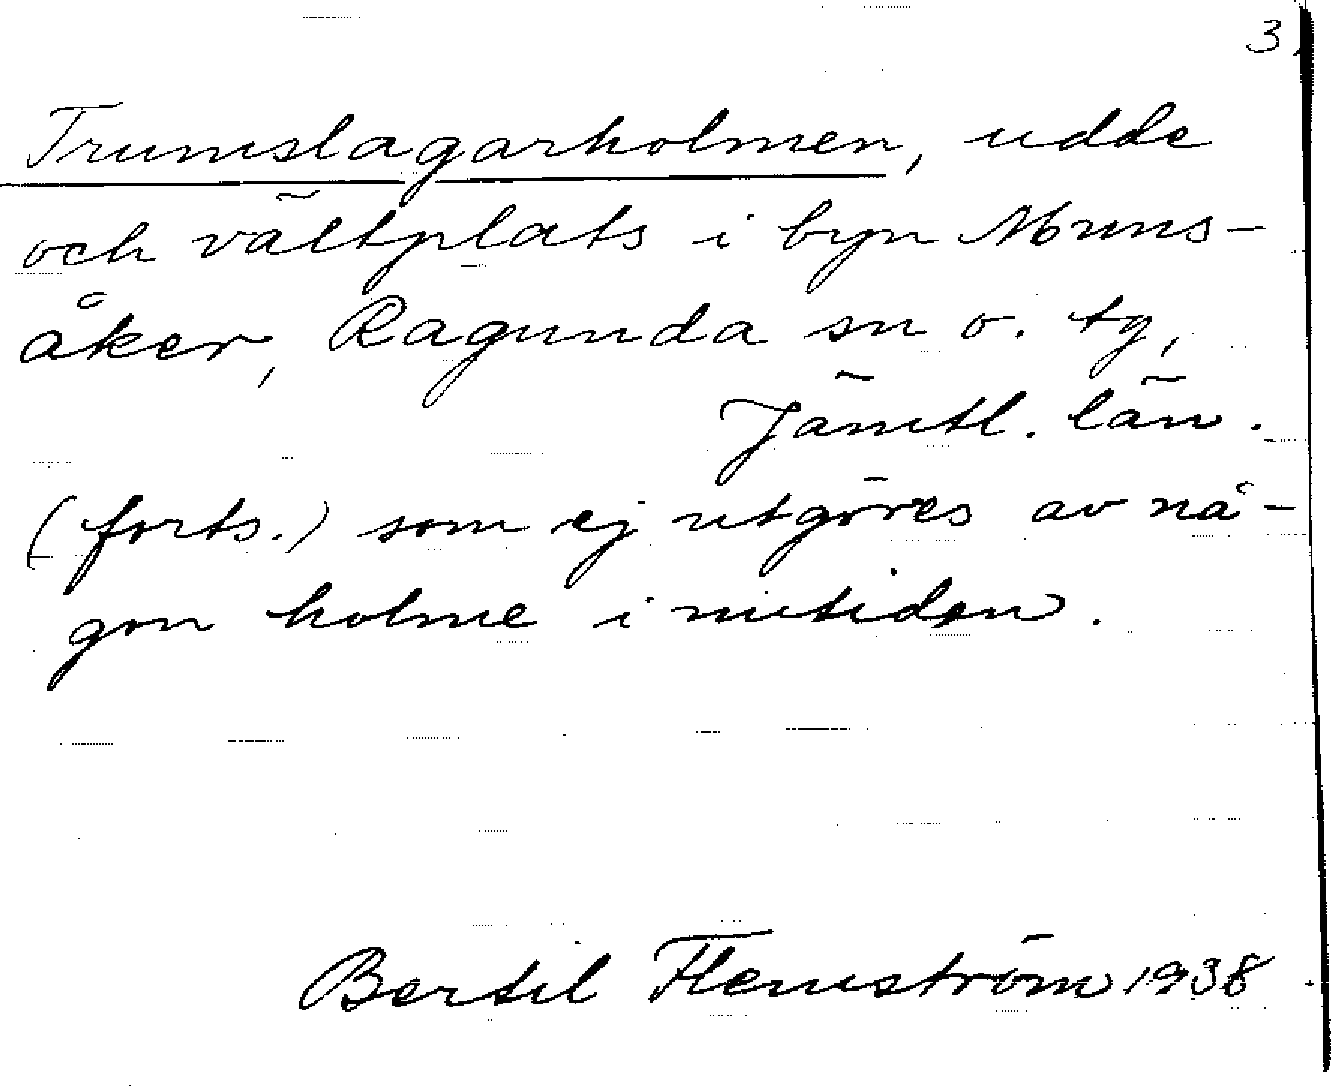 3.
Trumslagarholmen, udde
och vältplats i byn Muns-
åker, Ragunda sn o. tg,
Jämtl. län.
(forts.) som ej utgöres av nå-
gon holme i nutiden.
Bertil Flemström 1938